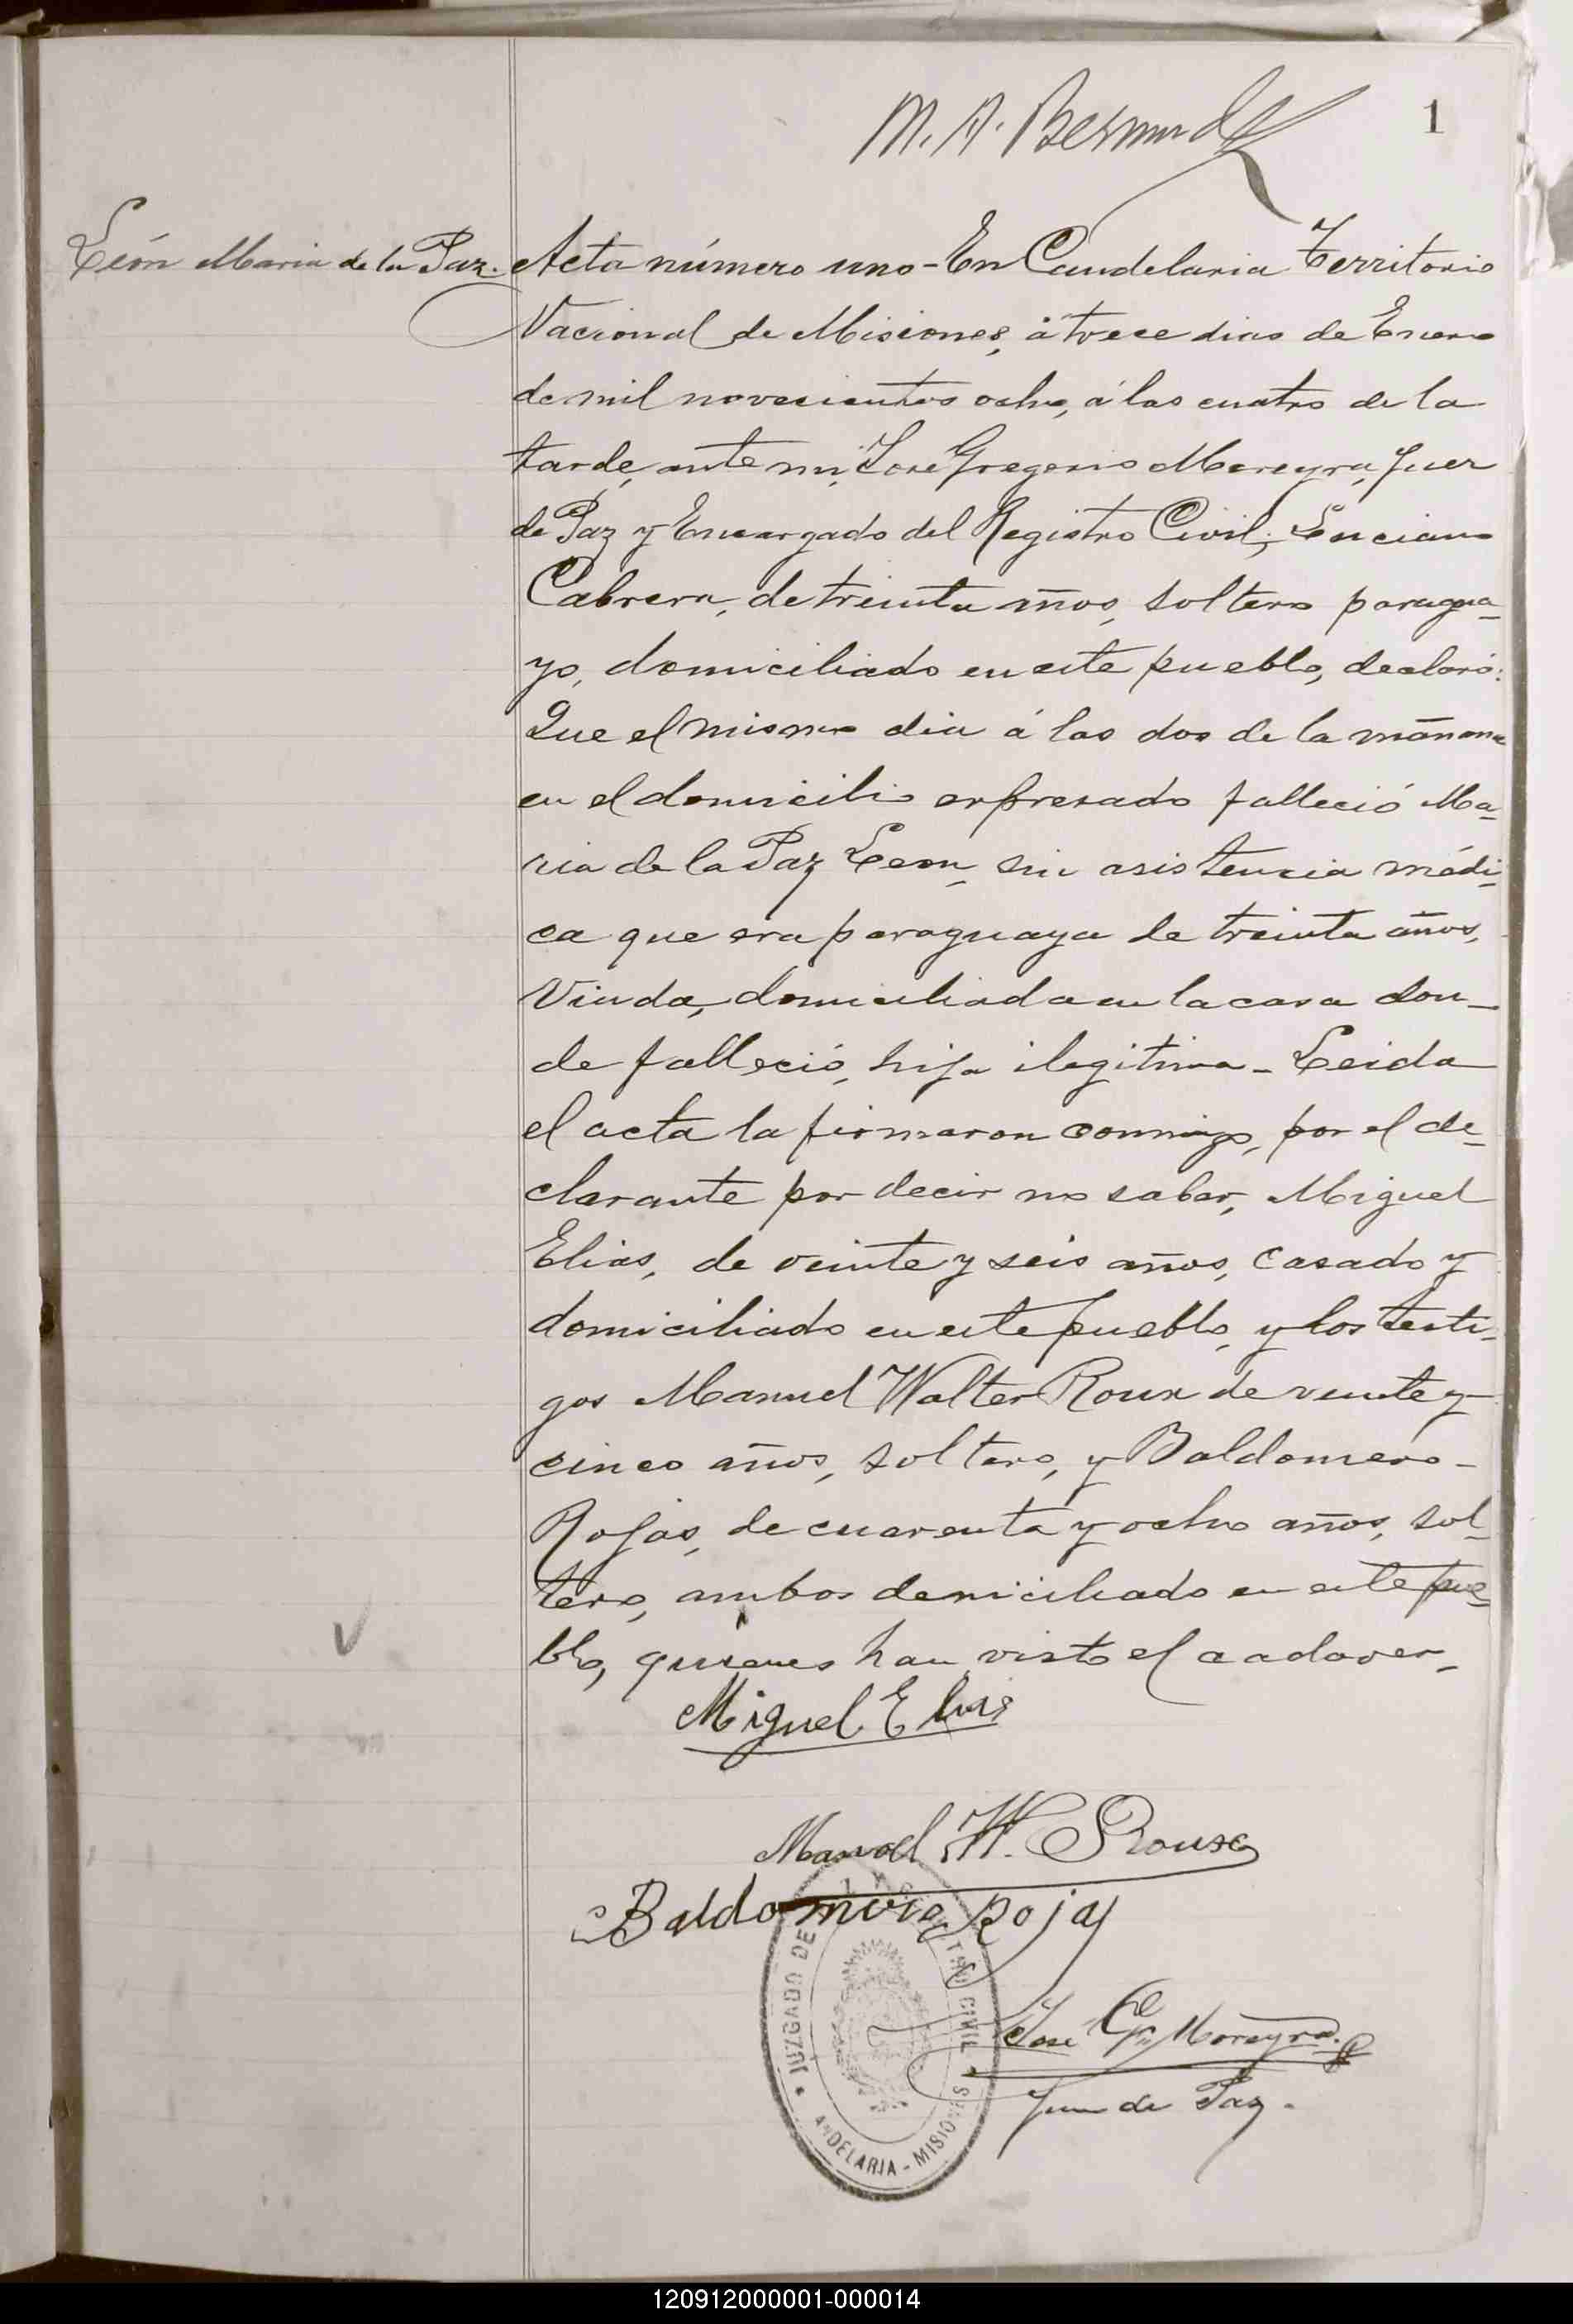 M. A. Bermudez
1
León Maria de la Paz.
Acta número uno - En Candelaria Territorio
Nacional de Misiones, á trece dias de Enero
de mil novecientos ocho, á las cuatro de la
tarde, ante mi, José Gregorio Moreyra, Juez
de Paz y Encargado del Registro Civil; Luciano
Cabrera, de treinta años, soltero paragua-
yo, domiciliado en este pueblo, declaró:
Que el mismo dia á las dos de la mañana
en el domicilio expresado falleció Ma-
ria de la Paz Leon, sin asistencia médi-
ca que era paraguaya de treinta años,
Viuda, domiciliada en la casa don-
de falleció, hija ilegitima - Leida
el acta la firmaron conmigo, por el de-
clarante por decir no saber, Miguel
Elias, de veinte y seis años, casado y
domiciliado en este pueblo, y los testi-
gos Manuel Walter Roux de veinte y
cinco años, soltero, y Baldomero -
Rojas, de cuarenta y ocho años, sol-
tero, ambos domiciliado en este pue-
blo, quienes han visto el cadaver -
Miguel Elias
Manuel W. Roux
Baldomero Rojas
José G. Moreyra.
Juez de Paz.
JUZGADO DE CIVIL
ANDELARIA - MISIONES
120912000001-000014